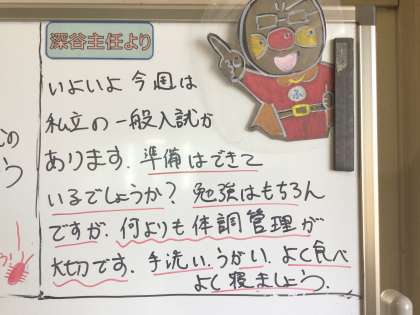 深谷主任より
いよいよ今週は
私立の一般入試が
あります. 準備はできて
いるでしょうか? 勉強はもちろん
ですが. 何よりも体調管理が
大切です. 手洗い. うがい. よく食べ
よく寝ましょう.
ふ
う